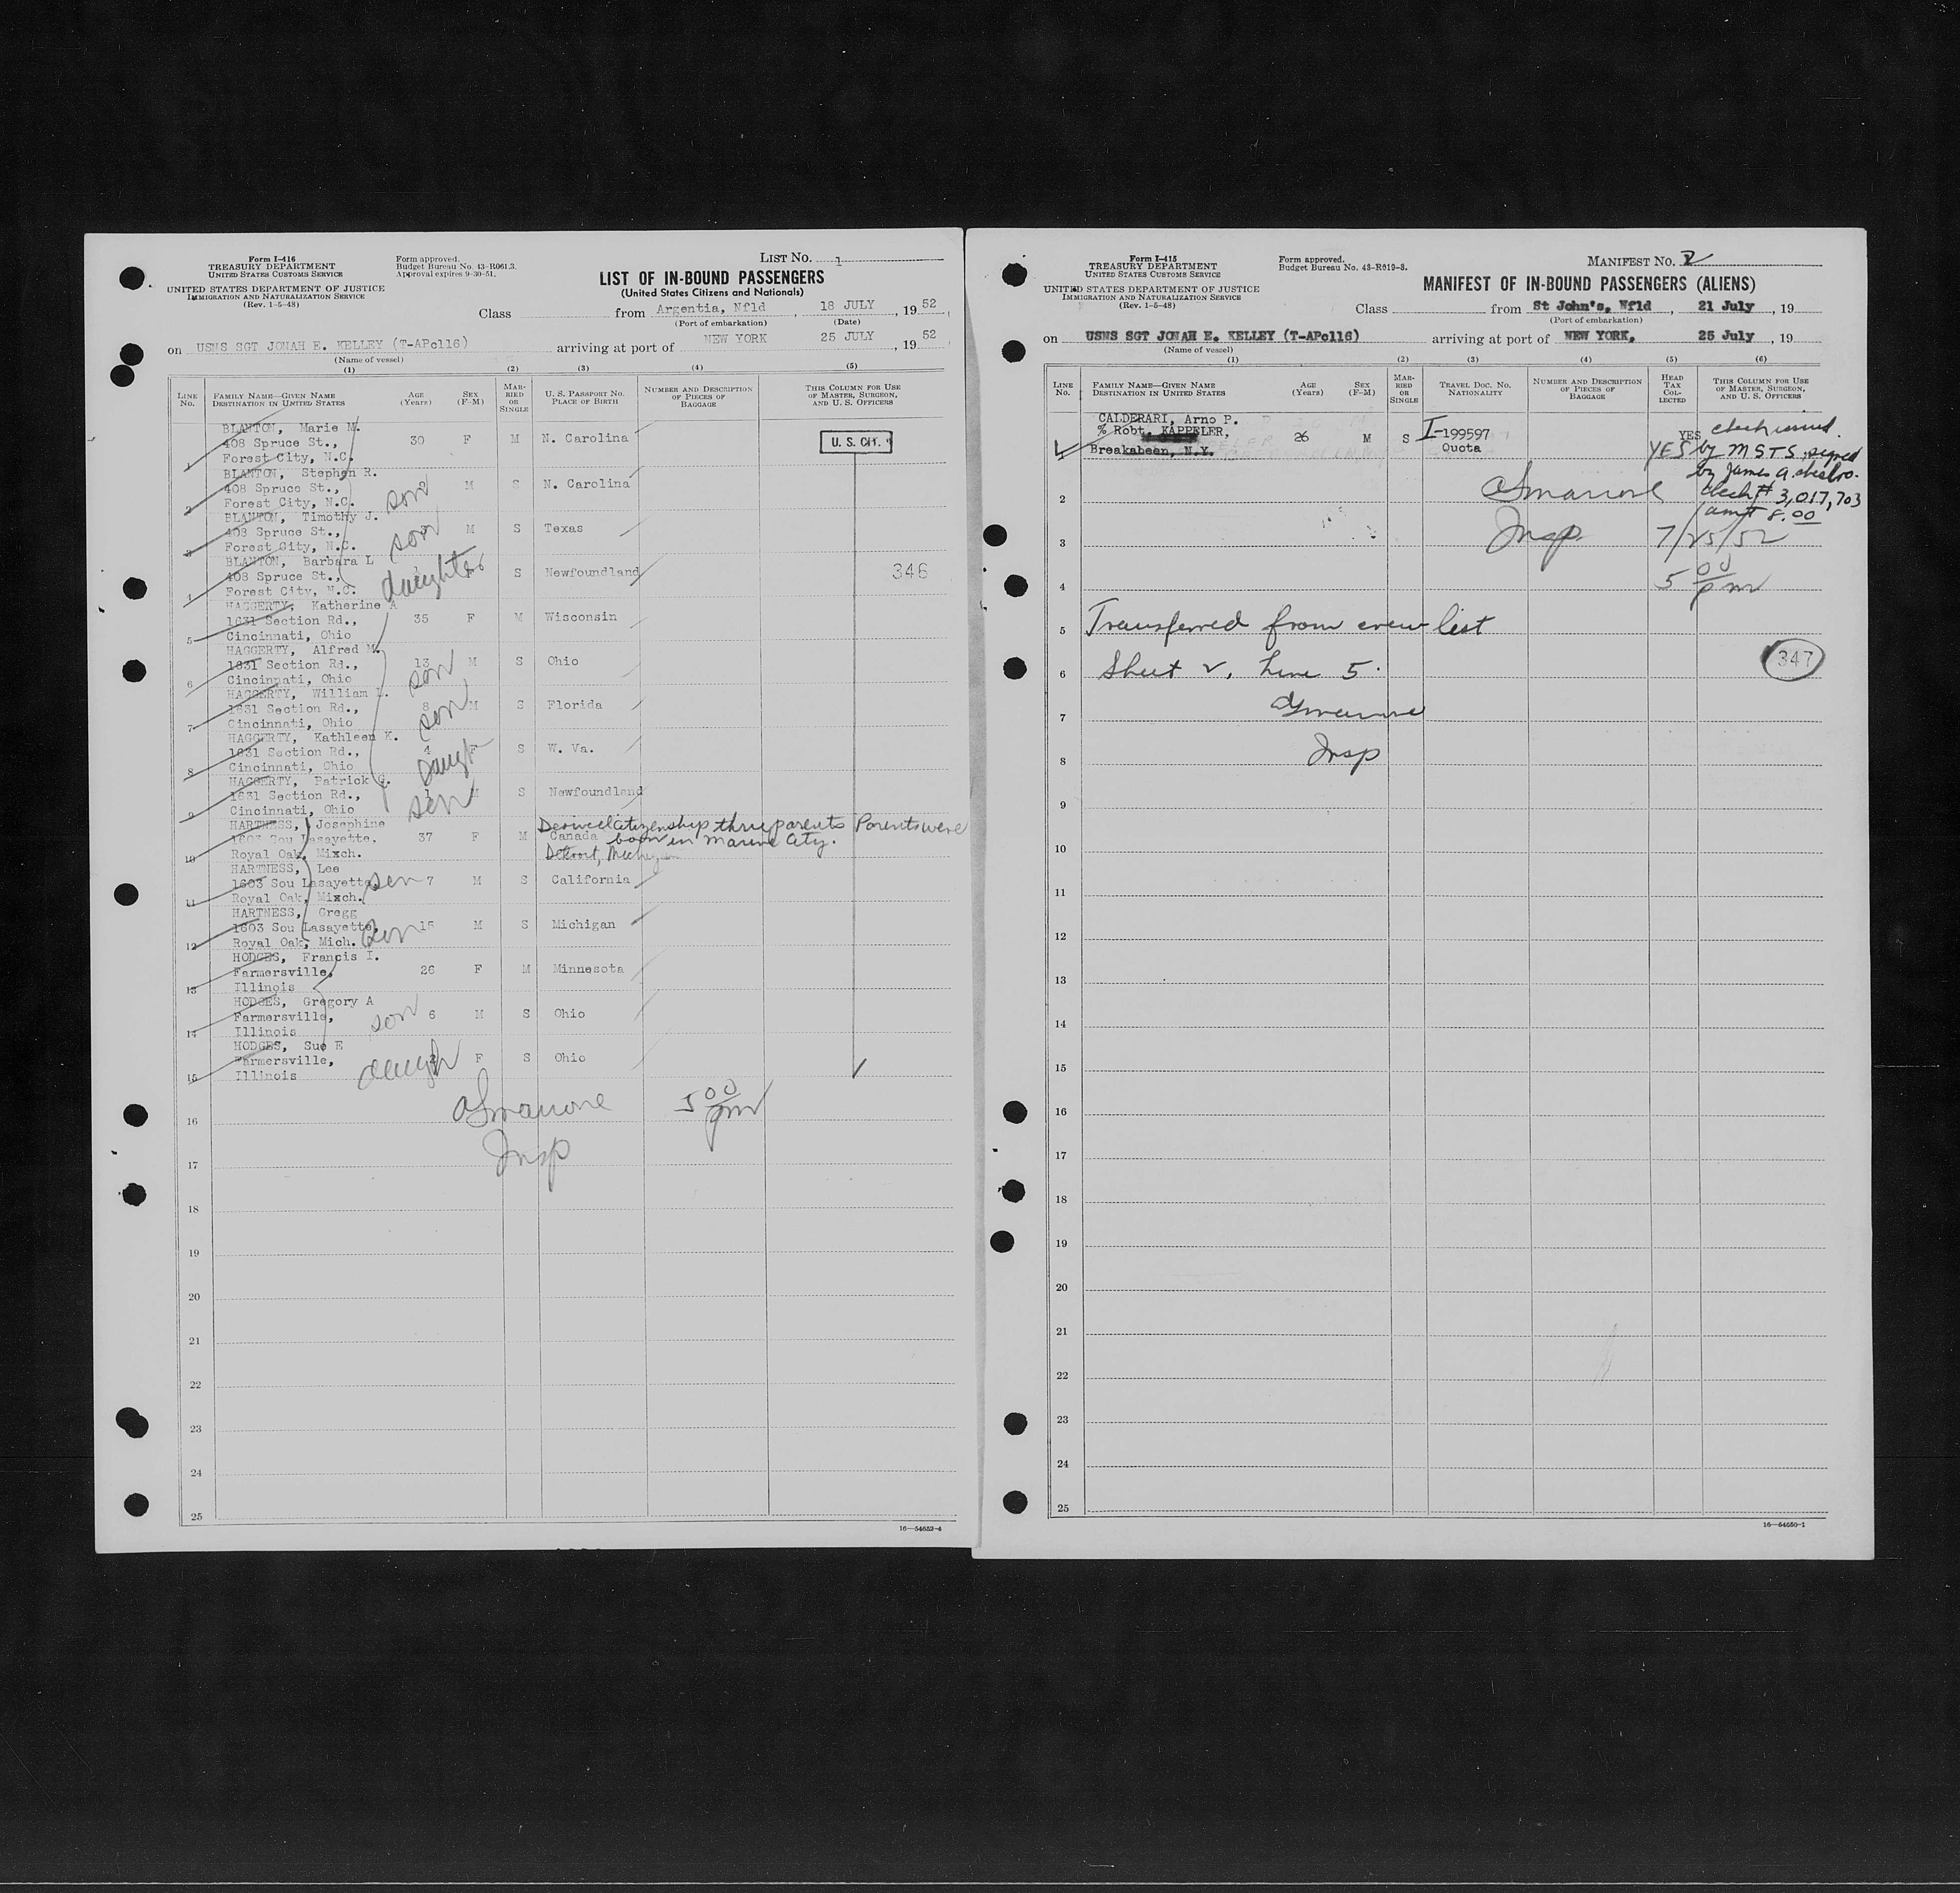 Form I-416
TREASURY DEPARTMENT
UNITED STATES CUSTOMS SERVICE
UNITED STATES DEPARTMENT OF JUSTICE
IMMIGRATION AND NATURALIZATION SERVICE
(Rev. 1-5-48)
Form approved.
Budget Bureau No. 43-R061.3.
Approval expires 9-30-51.
LIST NO. 1
LIST OF IN-BOUND PASSENGERS
(United States Citizens and Nationals)
Class from Argentia, Nfld , 18 JULY , 19 52
(Port of embarkation) (Date)
on USNS SGT JONAH E. KELLEY (T-APc116) arriving at port of NEW YORK 25 JULY , 19 52
(Name of vessel)
(1) (2) (3) (4) (5)
LINE NO. FAMILY NAME—GIVEN NAME DESTINATION IN UNITED STATES AGE (Years) SEX (F-M) MARRIED OR SINGLE U. S. PASSPORT NO. PLACE OF BIRTH NUMBER AND DESCRIPTION OF PIECES OF BAGGAGE THIS COLUMN FOR USE OF MASTER, SURGEON, AND U. S. OFFICERS
BLANTON, Marie M.
408 Spruce St., 30 F M N. Carolina U. S. CIT.
1 Forest City, N.C.
BLANTON, Stephen R.
408 Spruce St., son M S N. Carolina
2 Forest City, N.C.
BLANTON, Timothy J.
408 Spruce St., son M S Texas
3 Forest City, N.C.
BLANTON, Barbara L
408 Spruce St., daughter S Newfoundland 346
4 Forest City, N.C.
HAGGERTY, Katherine A
1631 Section Rd., 35 F M Wisconsin
5 Cincinnati, Ohio
HAGGERTY, Alfred M.
1631 Section Rd., 13 son M S Ohio
6 Cincinnati, Ohio
HAGGERTY, William L.
1631 Section Rd., 8 son M S Florida
7 Cincinnati, Ohio
HAGGERTY, Kathleen K.
1631 Section Rd., 4 Daugh F S W. Va.
8 Cincinnati, Ohio
HAGGERTY, Patrick G.
1631 Section Rd., 1 son M S Newfoundland
9 Cincinnati, Ohio
HARTNESS, Josephine Derived citizenship thru parents Parents were
1603 Sou Lasayette. 37 F M Canada born in Marine City.
10 Royal Oak, Mixch. Detroit, Michigan
HARTNESS, Lee
1603 Sou Lasayette son 7 M S California
11 Royal Oak, Mixch.
HARTNESS, Gregg
1603 Sou Lasayette, son 15 M S Michigan
12 Royal Oak, Mich.
HODGES, Francis I.
Farmersville, 26 F M Minnesota
13 Illinois
HODGES, Gregory A
Farmersville, son 6 M S Ohio
14 Illinois
HODGES, Sue E
Farmersville, daugh F S Ohio
15 Illinois
16 5 00 pm
17 Insp
18
19
20
21
22
23
24
25
16—54652-4
Form I-415
TREASURY DEPARTMENT
UNITED STATES CUSTOMS SERVICE
UNITED STATES DEPARTMENT OF JUSTICE
IMMIGRATION AND NATURALIZATION SERVICE
(Rev. 1-5-48)
Form approved.
Budget Bureau No. 43-R019-3.
MANIFEST NO. 2
MANIFEST OF IN-BOUND PASSENGERS (ALIENS)
Class from St John's, Nfld , 21 July , 19
(Port of embarkation)
on USNS SGT JONAH E. KELLEY (T-APc116) arriving at port of NEW YORK, 25 July , 19
(Name of vessel)
(1) (2) (3) (4) (5) (6)
LINE NO. FAMILY NAME—GIVEN NAME DESTINATION IN UNITED STATES AGE (Years) SEX (F-M) MARRIED OR SINGLE TRAVEL DOC. NO. NATIONALITY NUMBER AND DESCRIPTION OF PIECES OF BAGGAGE HEAD TAX COLLECTED THIS COLUMN FOR USE OF MASTER, SURGEON, AND U. S. OFFICERS
CALDERARI, Arno P. check issued
% Robt. KAPPELER, 26 M S I-199597 YES
1 Breakabean, N.Y. Quota YES by MSTS, signed
by James A.
2 check # 3,017,703
amt 8.00
3 Insp 7/25/52
4 5 00 pm
5 Transferred from crew list
6 Sheet 2, Line 5. 347
7
8 Insp
9
10
11
12
13
14
15
16
17
18
19
20
21
22
23
24
25
16—54650-1